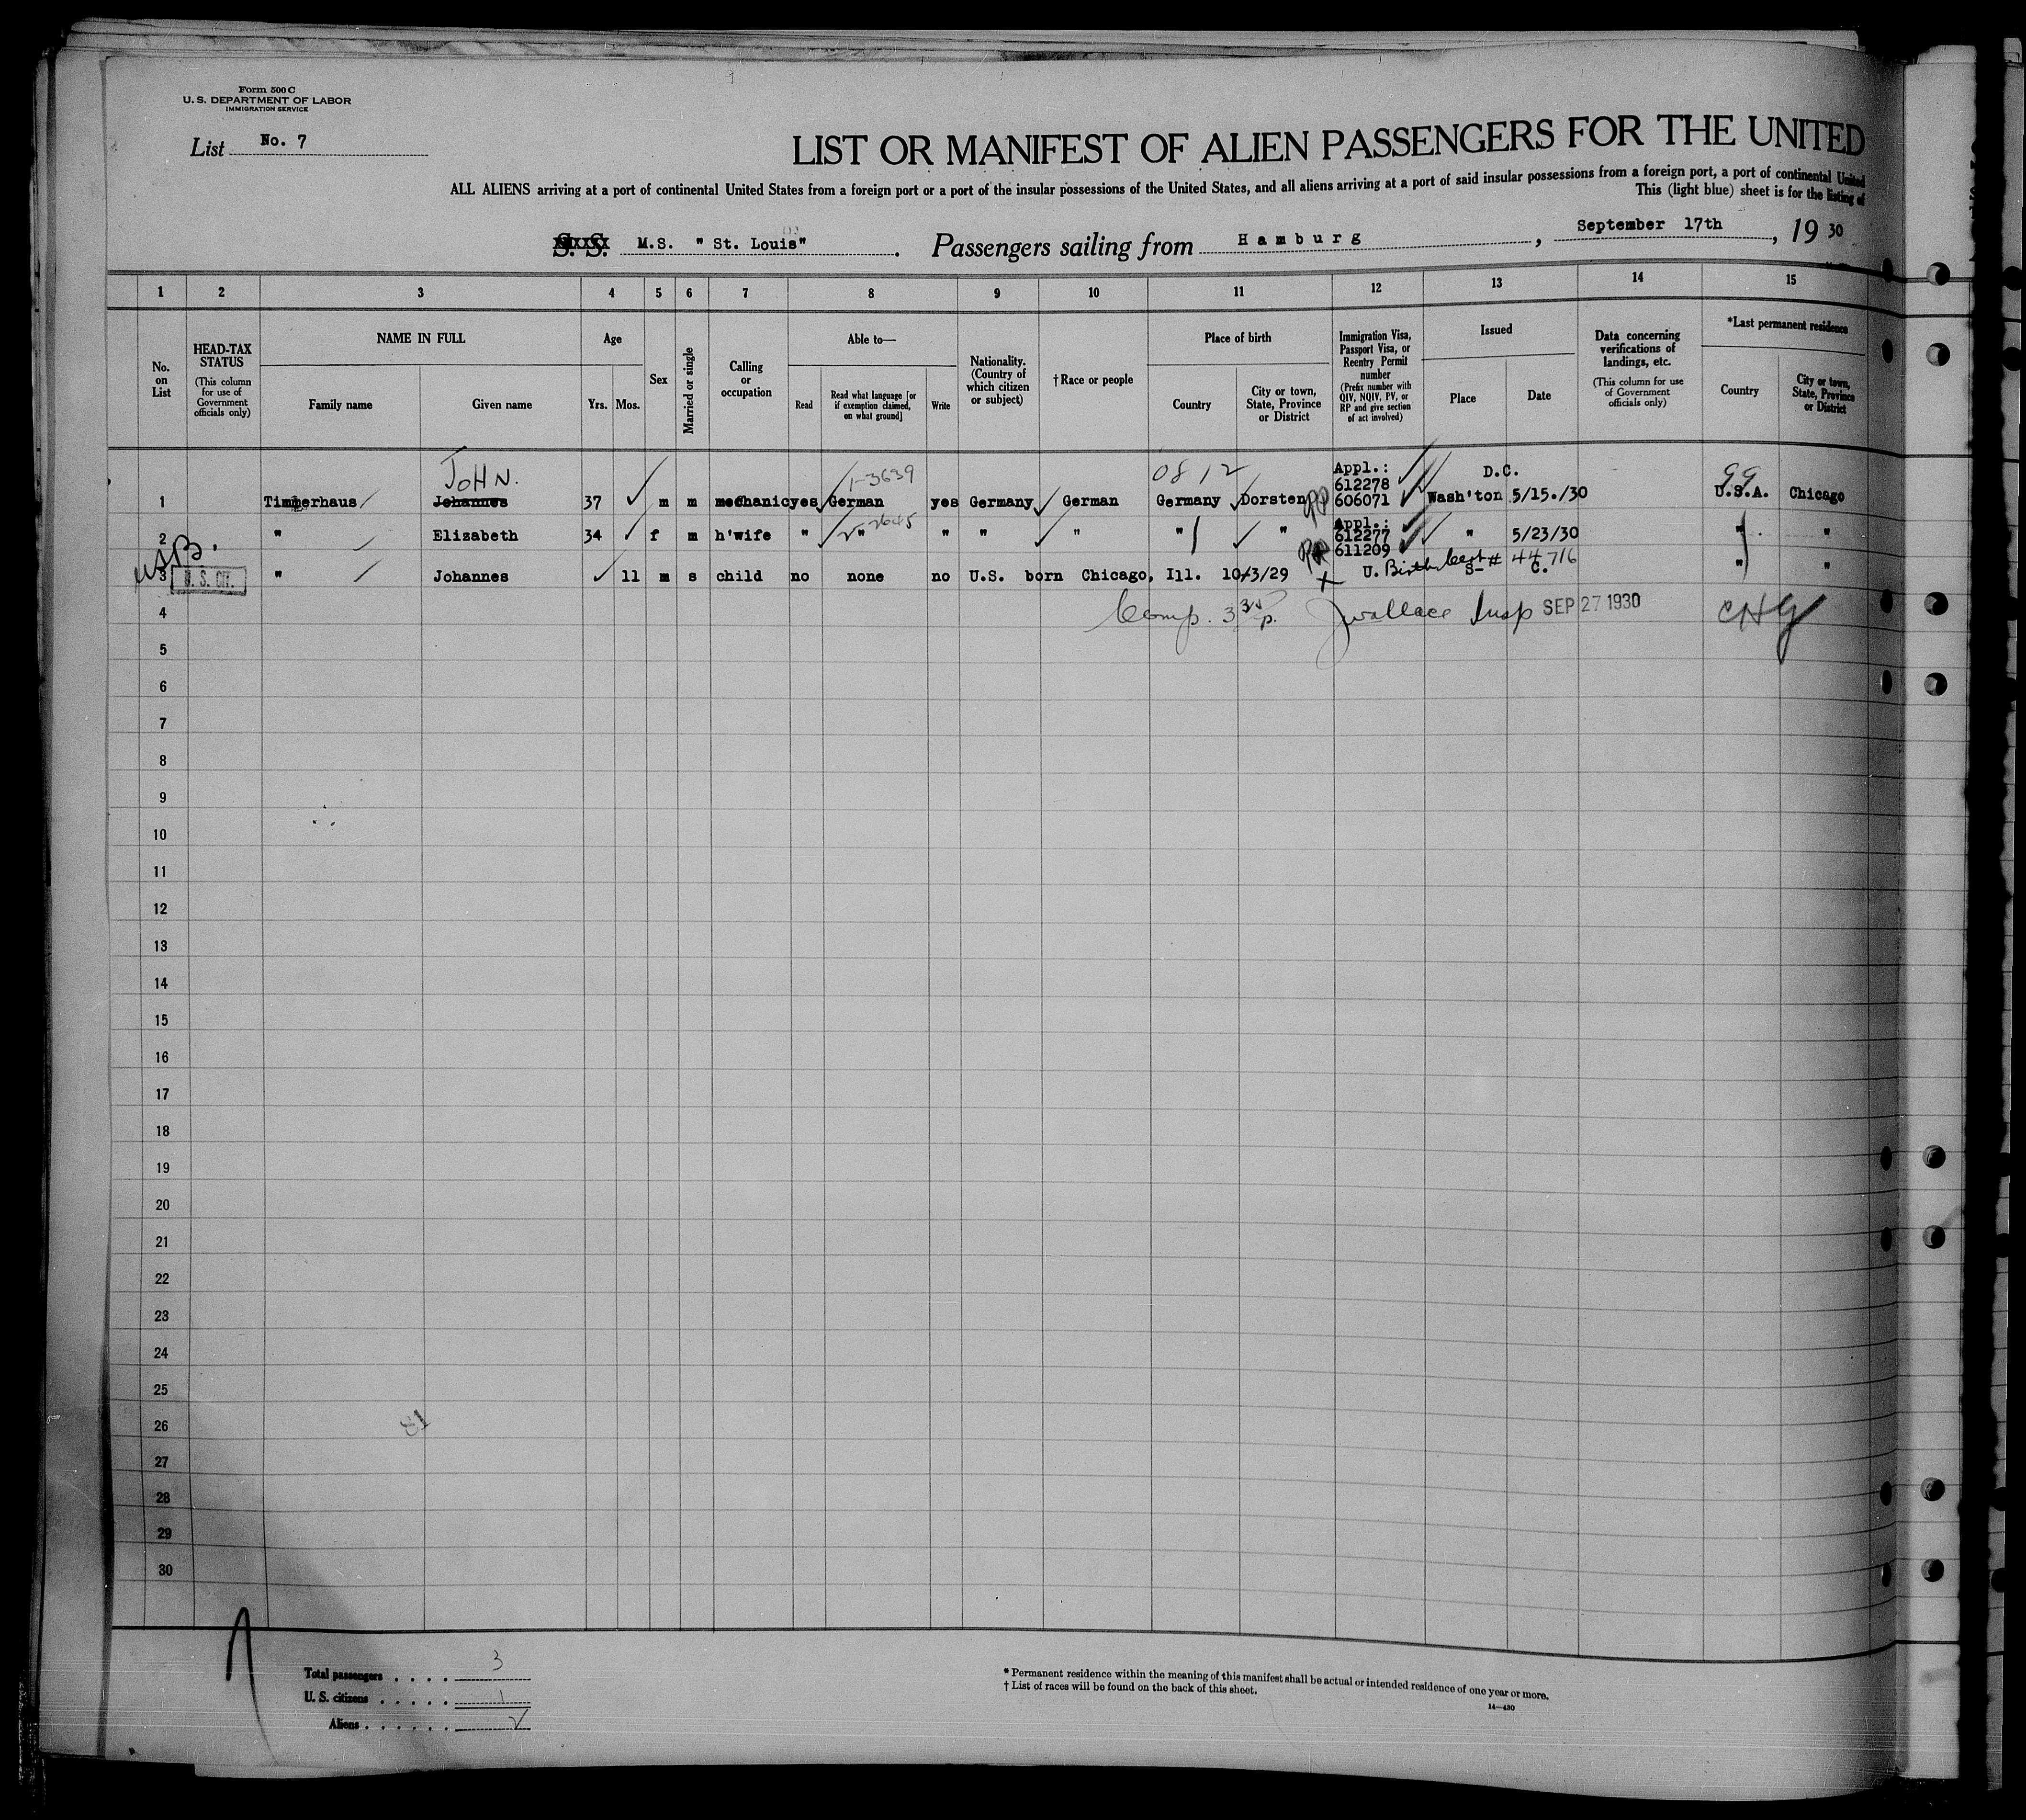 Form 500 C
U. S. DEPARTMENT OF LABOR
IMMIGRATION SERVICE
List No. 7
LIST OR MANIFEST OF ALIEN PASSENGERS FOR THE UNITED
ALL ALIENS arriving at a port of continental United States from a foreign port or a port of the insular possessions of the United States, and all aliens arriving at a port of said insular possessions from a foreign port, a port of continental United
This (light blue) sheet is for the listing of
S. S. M.S. " St. Louis" . Passengers sailing from Hamburg , September 17th , 19 30
1 2 3 4 5 6 7 8 9 10 11 12 13 14 15
No. on List
HEAD-TAX STATUS (This column for use of Government officials only)
NAME IN FULL
Family name Given name
Age
Yrs. Mos.
Sex
Married or single
Calling or occupation
Able to—
Read Read what language [or if exemption claimed, on what ground] Write
Nationality. (Country of which citizen or subject)
†Race or people
Place of birth
Country City or town, State, Province or District
Immigration Visa, Passport Visa, or Reentry Permit number (Prefix number with QIV, NQIV, PV, or RP and give section of act involved)
Issued
Place Date
Data concerning verifications of landings, etc. (This column for use of Government officials only)
*Last permanent residence
Country City or town, State, Province or District
JOHN. 1-3639 0812 Appl.: 612278 D.C. 99
1 Timmerhaus Johannes 37 m m mechanic yes German yes Germany German Germany Dorsten RP 606071 Wash'ton 5/15./30 U.S.A. Chicago
2645 Appl.: 612277
2 " Elizabeth 34 f m h'wife " " " " " " " RP 611209 " 5/23/30 " "
USB.
3 U. S. CIT. " Johannes 11 m s child no none no U.S. born Chicago, Ill. 10/3/29 U. S. C. Birth Cert # 44716 " "
4 Comp. 3rd p. J Wallace Insp SEP 27 1930
5
6
7
8
9
10
11
12
13
14
15
16
17
18
19
20
21
22
23
24
25
26
27
28
29
30
Total passengers . . . . 3
U. S. citizens . . . . . 1
Aliens . . . . . . 2
* Permanent residence within the meaning of this manifest shall be actual or intended residence of one year or more.
† List of races will be found on the back of this sheet.
14—430